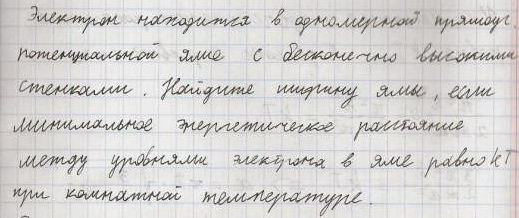 Электрон находится в одномерной прямоуг.
потенциальной яме с бесконечно высокими
стенками. Найдите ширину ямы, если
минимальное энергетическое расстояние
между уровнями электрона в яме равно kT
при комнатной температуре.